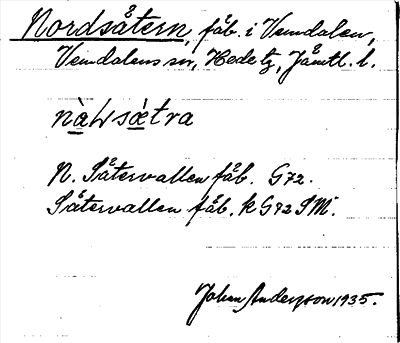 Nordsätern, fäb. i Vemdalen,
Vemdalens sn, Hede tg, Jämtl. l.
nàɯsǽtra
N. Sätervallen fäb. G72.
Sätervallen fäb. k G72 SM.
Johan Anderzon 1935.